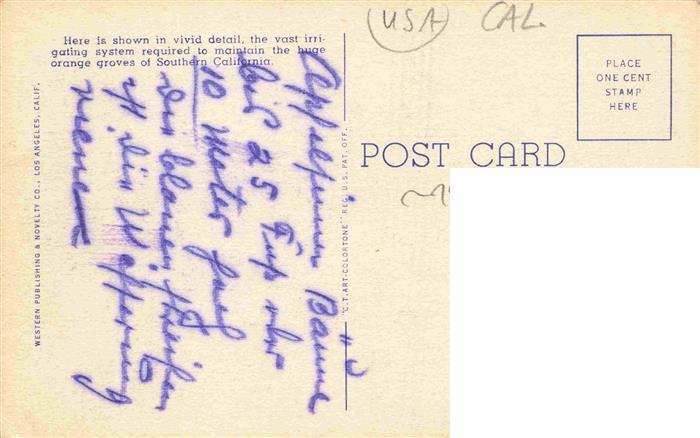 USA CAL.
Here is shown in vivid detail, the vast irri-
gating system required to maintain the huge
orange groves of Southern California.
PLACE
ONE CENT
STAMP
HERE
POST CARD
WESTERN PUBLISHING & NOVELTY CO., LOS ANGELES, CALIF.
"C.T. ART-COLORTONE" REG. U.S. PAT. OFF.
Apfelsinen Bäume
bis 25 Fuß oder
10 Meter
die blauen Streifen
die